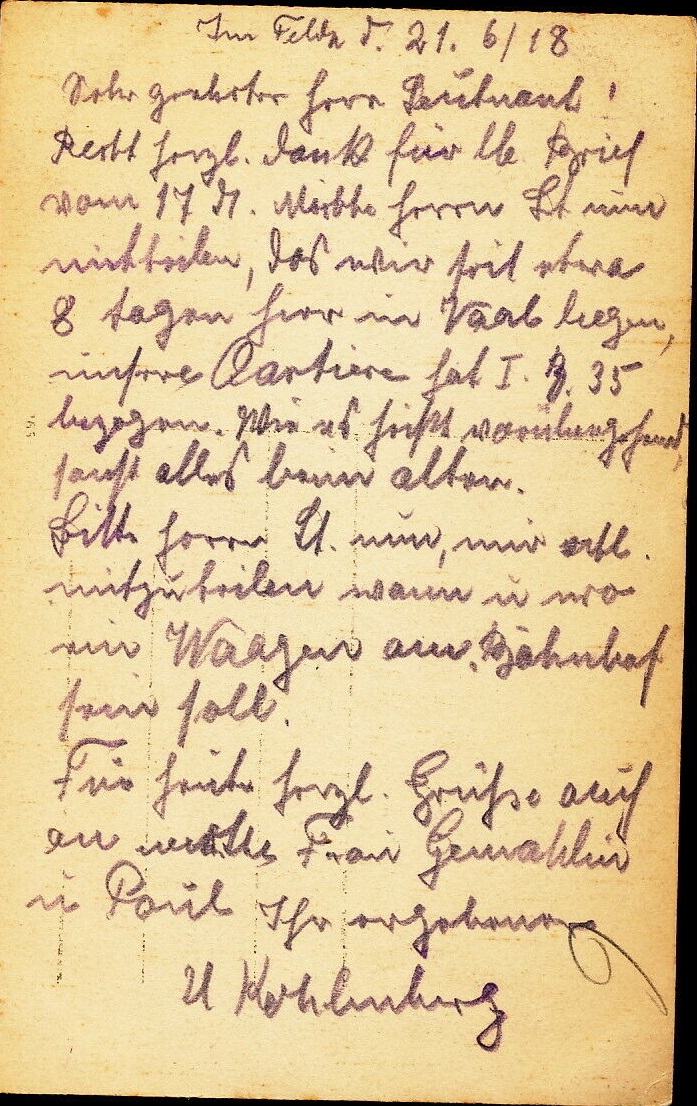 Im Felde d. 21. 6/18
Sehr geehrter Herr Leutnant!
Recht herzl. Dank für lb. Brief
vom 17 ds. Möchte Herrn Lt. nun
mitteilen, das wir seit etwa
8 tagen hier in Vaal liegen,
unsere Cartiere hat I. B. 35
bezogen. Wie es heißt vorübergehend,
sonst alles beim alten.
Bitte Herrn Lt. nun, mir
mitzuteilen wann u wo
ein Waagen am Bahnhof
sein soll.
Für heute herzl. Grüße auch
an werthe Frau Gemahlin
u Paul Ihr ergebener
U Kohlenberg